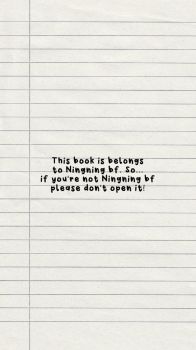 This book is belongs
to Ningning bf. So...
if you're not Ningning bf
please don't open it!